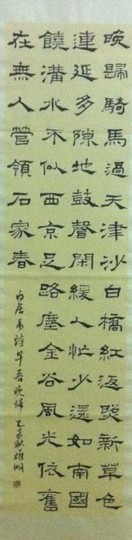 晚歸騎馬過天津沙白橋紅返照新草色
連延多隙地鼓聲閑緩人忙少還如南國
饒溝水不似西京足路塵金谷風光依舊
在無人管領石家春
白居易詩早春晚歸